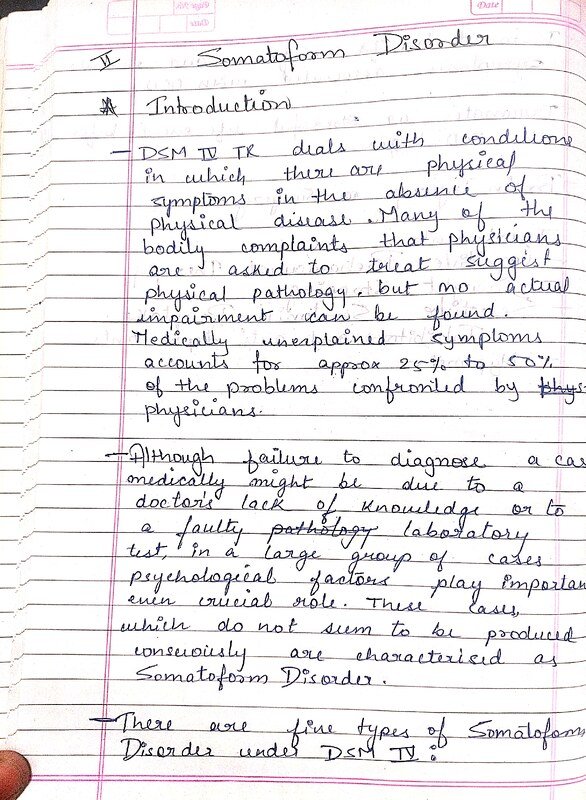 Date
II Somatoform Disorder
A Introduction
— DSM IV TR deals with conditions
in which there are physical
symptoms in the absence of
physical disease. Many of the
bodily complaints that physicians
are asked to treat suggist
physical pathology. but no actual
impairment can be found.
Medically unexplained symptoms
accounts for approx 25% to 50%
of the problems confronted by phys
physicians.
— Although failure to diagnose a cas
medically might be due to a
doctor's lack of knowledge or to
a faulty pathology laboratory
test, in a large group of cases
psychological factors play importan
even crucial role. These cases,
which do not seem to be produced
consciously are characterised as
Somatoform Disorder.
— There are five types of Somatoform
Disorder under DSM IV :